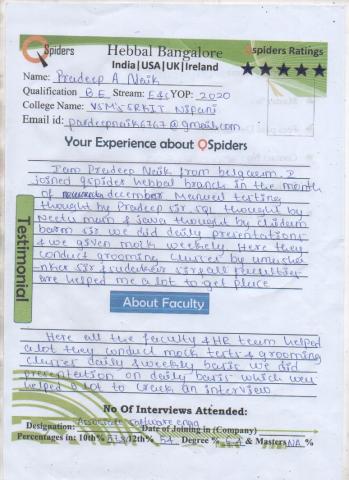 QSpiders
Hebbal Bangalore
India|USA|UK|Ireland
Qspiders Ratings
Name: Pradeep A Naik
Qualification B.E Stream: E&C YOP: 2020
College Name: VSM'S SRKIT Nipani
Email id: pardeepnaik6767@gmail.com
Your Experience about QSpiders
Testimonial
I am Pradeep Naik from belgaum. I
joined qspider hebbal branch in the month
of december Manual testing
thought by Pradeep sir SQL thought by
Neetu mam & java thought by
sir we did daily presentations
& we given mock weekly. Here they
conduct grooming classes by
sir & sir all faculties
are helped me a lot to get place
About Faculty
Here all the faculty & HR team helped
a lot they conduct mock tests & grooming
classes daily & weekly basis we did
presentation on daily basis which was
helped a lot to crack an interview
No Of Interviews Attended:
Designation: Associate software engg Date of Joining in (Company)
Percentages in: 10th% 12th% Degree % & Masters NA %